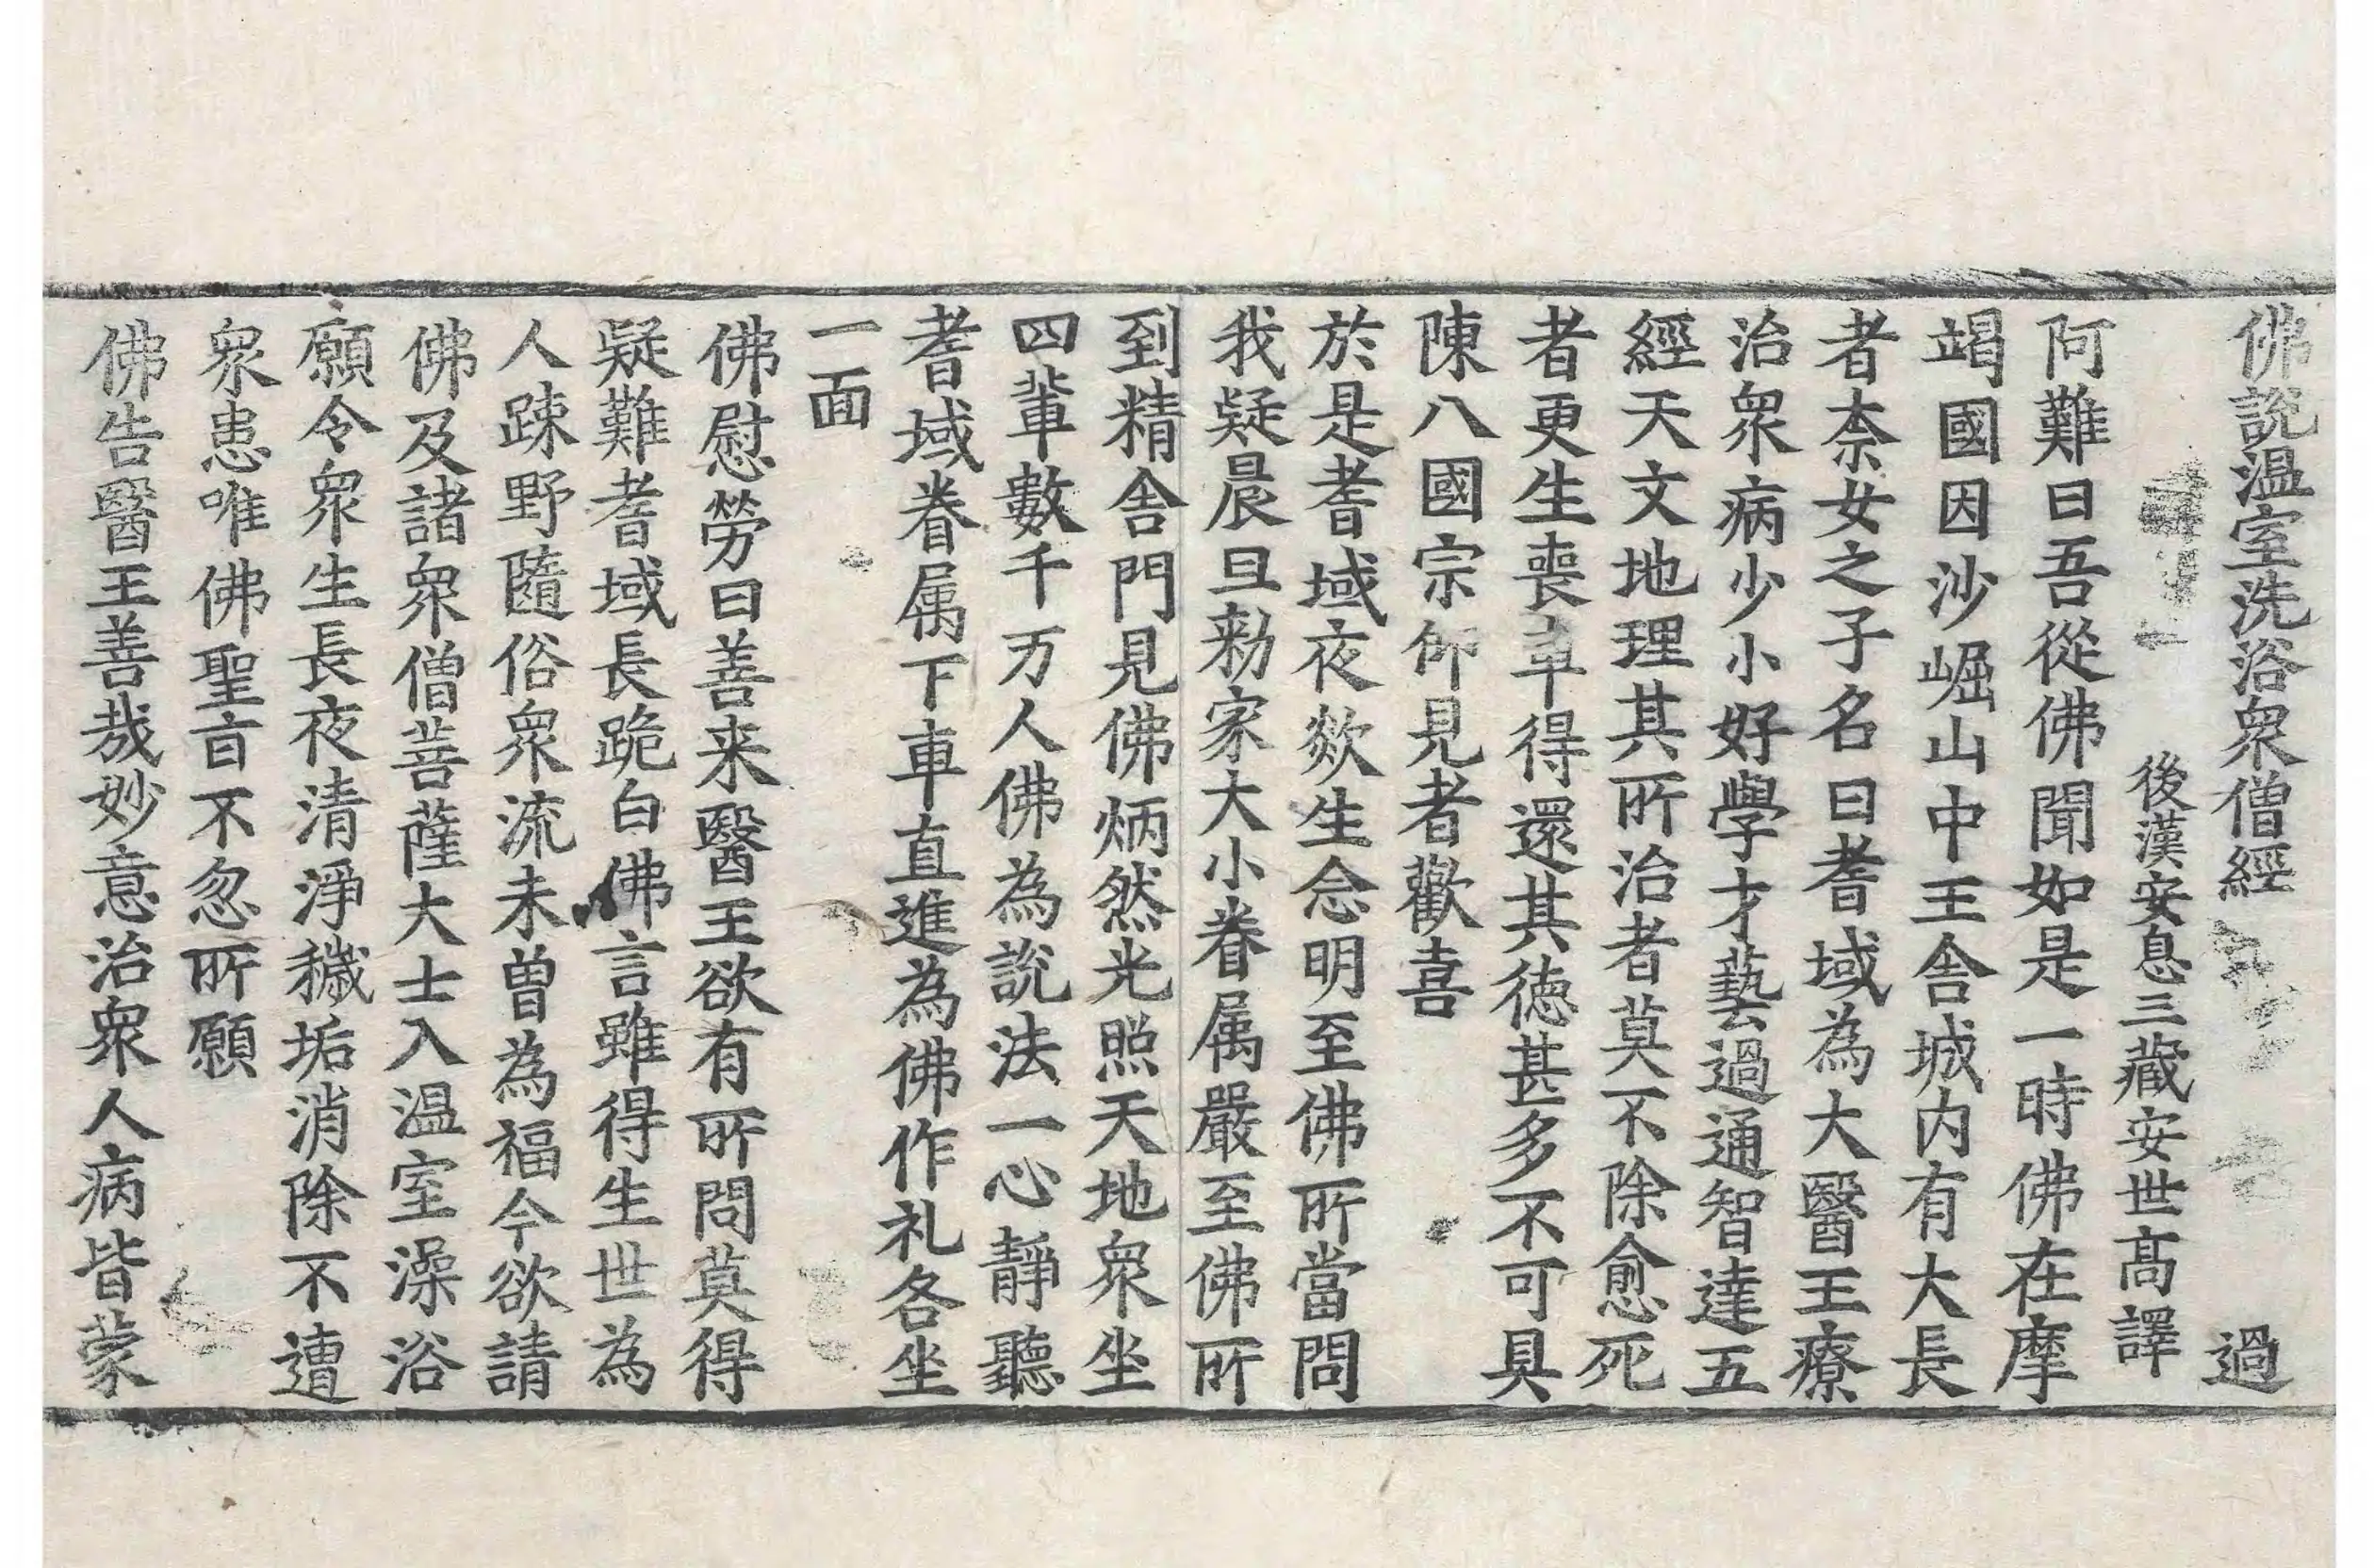 佛說温室洗浴衆僧經 過
後漢安息三藏安世髙譯
阿難曰吾從佛聞如是一時佛在摩
竭國因沙崛山中王舎城内有大長
者柰女之子名曰耆域為大醫王療
治衆病少小好學才藝過通智達五
經天文地理其所治者莫不除愈死
者更生喪車得還其徳甚多不可具
陳八國宗仰見者歡喜
於是耆域夜欻生念明至佛所當問
我疑晨旦勑家大小眷属嚴至佛所
到精舎門見佛炳然光照天地衆坐
四輩數千万人佛為說法一心靜聽
耆域眷属下車直進為佛作礼各坐
一面
佛慰勞曰善来醫王欲有所問莫得
疑難耆域長跪白佛言雖得生世為
人踈野隨俗衆流未曽為福今欲請
佛及諸衆僧菩薩大士入温室澡浴
願令衆生長夜清淨穢垢消除不遭
衆患唯佛聖㫖不忽所願
佛告醫王善哉妙意治衆人病皆蒙